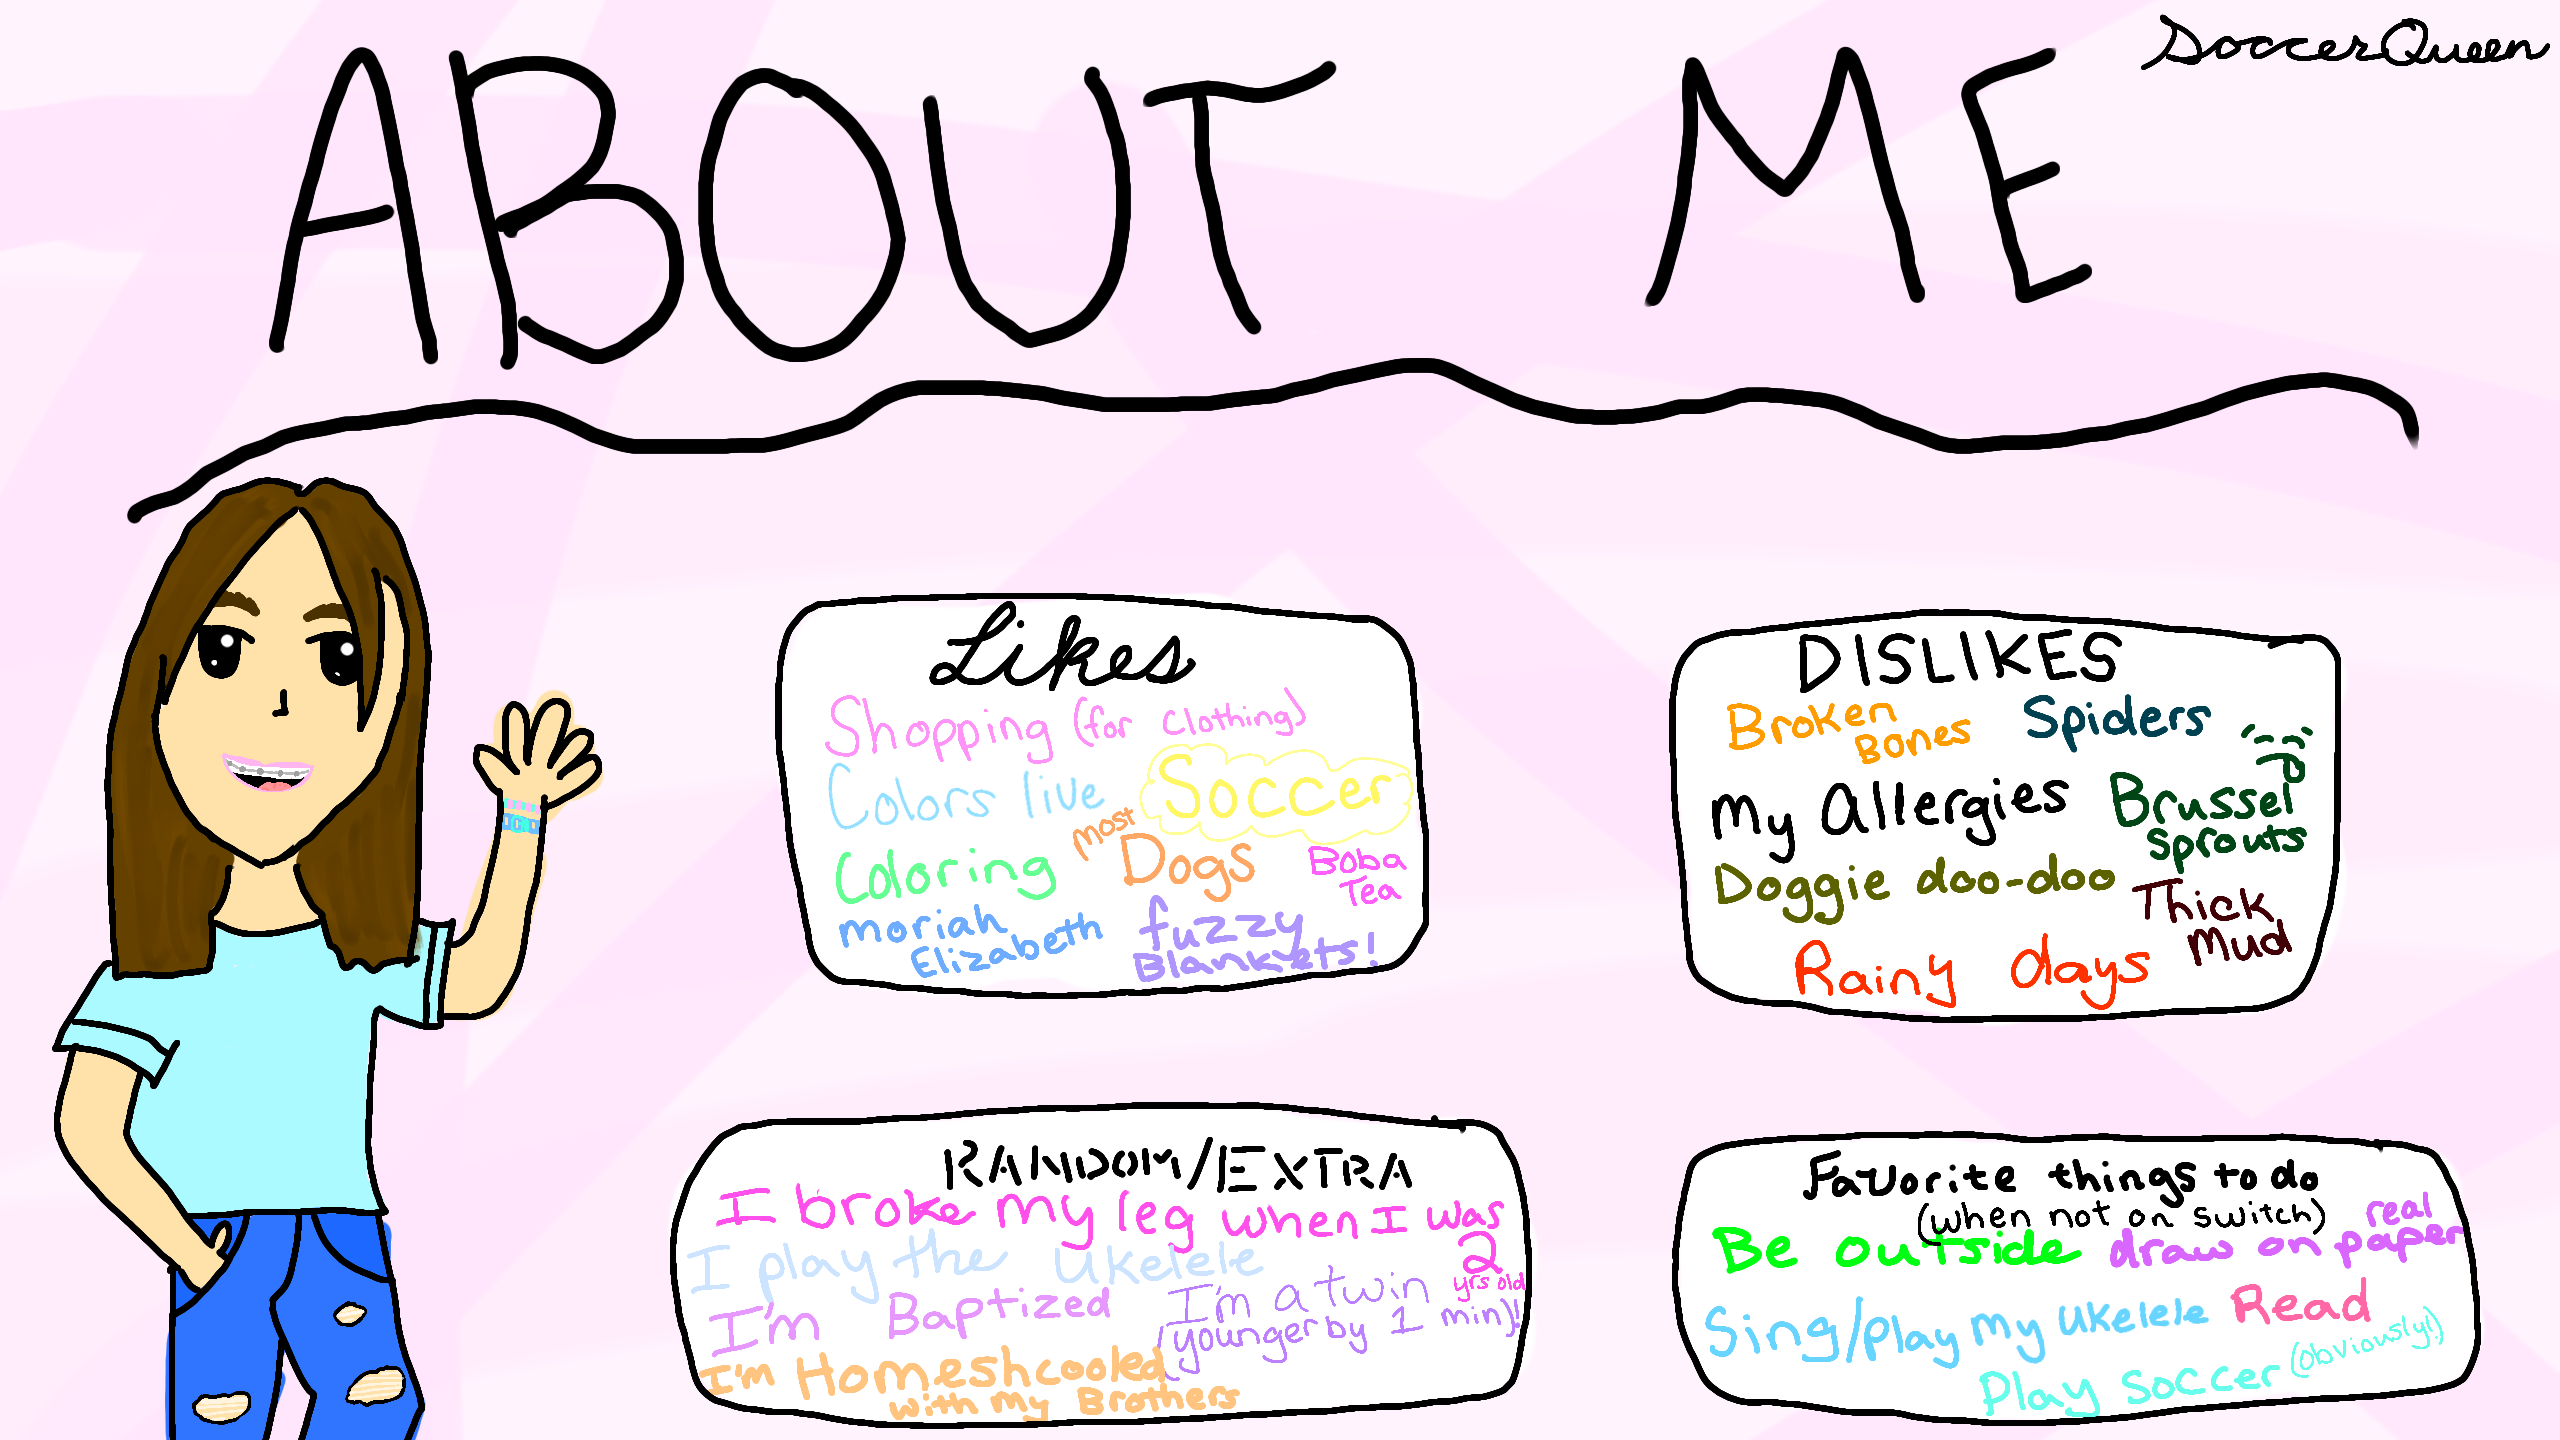 SoccerQueen
ABOUT ME
Likes
Shopping (for clothing)
Colors live
Soccer
Coloring
most Dogs
Boba
Tea
moriah
Elizabeth
fuzzy
Blankets!
DISLIKES
Broken
Bones
Spiders
My Allergies
Brussel
sprouts
Doggie doo-doo
Thick
Mud
Rainy days
RANDOM/EXTRA
I broke my leg when I was
2
yrs old
I play the Ukelele
I'm Baptized
I'm a twin
(younger by 1 min)!
I'm Homeshcooled
with my Brothers
Favorite things to do
(when not on switch)
Be outside
draw on real paper
Sing/play my ukelele
Read
Play soccer (obviously!)